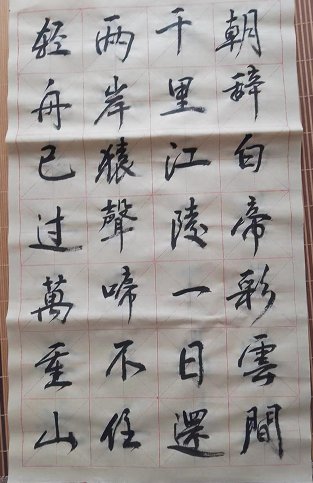 朝辞白帝彩雲間
千里江陵一日還
两岸猿聲啼不住
轻舟已过萬重山